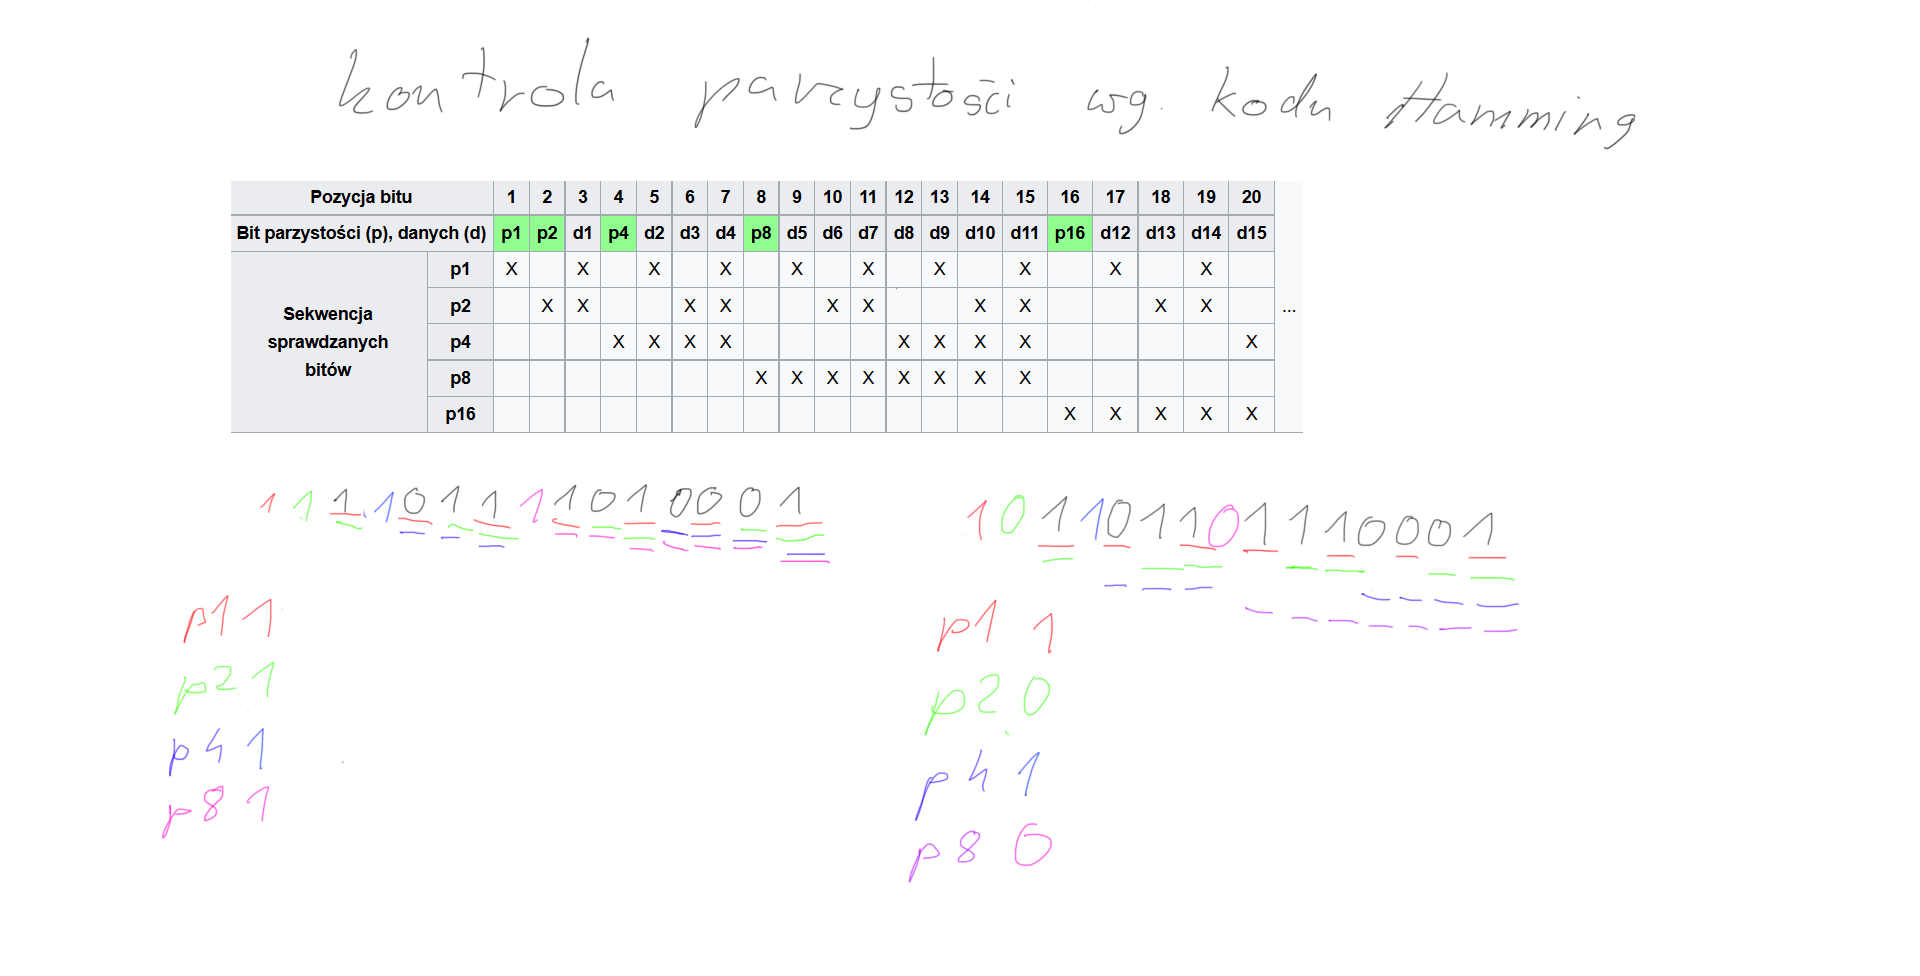 kontrola parzystości wg. kodu Hamming
Pozycja bitu 1 2 3 4 5 6 7 8 9 10 11 12 13 14 15 16 17 18 19 20
Bit parzystości (p), danych (d) p1 p2 d1 p4 d2 d3 d4 p8 d5 d6 d7 d8 d9 d10 d11 p16 d12 d13 d14 d15
Sekwencja sprawdzanych bitów
p1 X X X X X X X X X X
p2 X X X X X X X X X ...
p4 X X X X X X X X X
p8 X X X X X X X X
p16 X X X X X
1 1 1 1 0 1 1 1 1 0 1 0 0 0 1
p1 1
p2 1
p4 1
p8 1
1 0 1 1 0 1 1 0 1 1 1 0 0 0 1
p1 1
p2 0
p4 1
p8 0